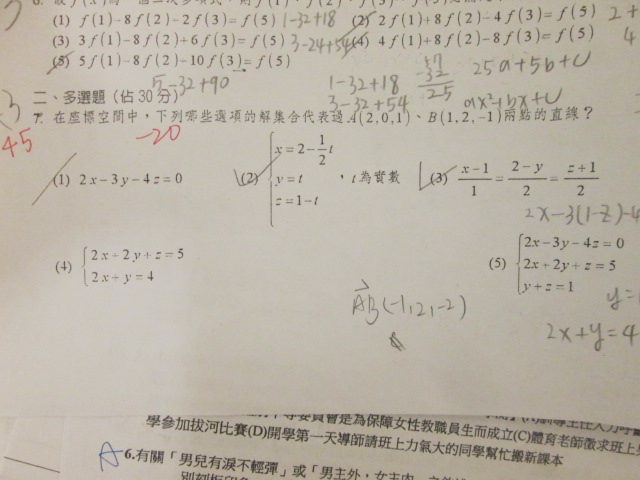 (1) f(1)-8f(2)-2f(3)=f(5) 1-32+18 (2) 2f(1)+8f(2)-4f(3)=f(5)
(3) 3f(1)-8f(2)+6f(3)=f(5) 3-24+54 (4) 4f(1)+8f(2)-8f(3)=f(5)
(5) 5f(1)-8f(2)+10f(3)=f(5)
5-32+90 1-32+18 57 25a+5b+c
3-32+54 -32 ax²+bx+c
25
二、多選題（佔30分）
7. 在座標空間中，下列哪些選項的解集合代表過A(2,0,1)、B(1,2,-1)兩點的直線？
45 -20
(1) 2x-3y-4z=0 (2) { x=2-1/2t
y=t ，t為實數
z=1-t
(3) x-1/1=2-y/2=z+1/2
2x-3(1-z)-4
(4) { 2x+2y+z=5
2x+y=4
(5) { 2x-3y-4z=0
2x+2y+z=5
y+z=1
AB(-1,2,-2) y=
2x+y=4
會是為保障女性教職員生而成立(C)體育老師徵求班上
學參加拔河比賽(D)開學第一天導師請班上力氣大的同學幫忙搬新課本
A 6.有關「男兒有淚不輕彈」或「男主外，女主內